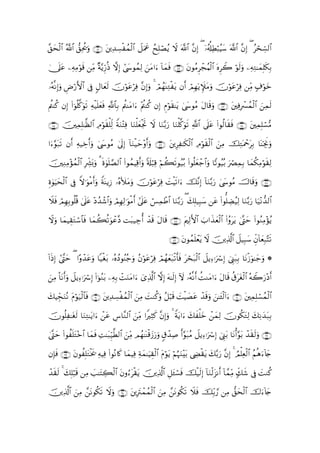 ٱلسِّحۡرُۖ إِنَّ ٱللَّهَ سَيُبۡطِلُهُۥٓ إِنَّ ٱللَّهَ لَا يُصۡلِحُ عَمَلَ ٱلۡمُفۡسِدِينَ ٨١ وَيُحِقُّ ٱللَّهُ ٱلۡحَقَّ
بِكَلِمَٰتِهِۦ وَلَوۡ كَرِهَ ٱلۡمُجۡرِمُونَ ٨٢ فَمَآ ءَامَنَ لِمُوسَىٰٓ إِلَّا ذُرِّيَّةٞ مِّن قَوۡمِهِۦ عَلَىٰ
خَوۡفٖ مِّن فِرۡعَوۡنَ وَمَلَإِيْهِمۡ أَن يَفۡتِنَهُمۡۚ وَإِنَّ فِرۡعَوۡنَ لَعَالٖ فِي ٱلۡأَرۡضِ وَإِنَّهُۥ
لَمِنَ ٱلۡمُسۡرِفِينَ ٨٣ وَقَالَ مُوسَىٰ يَٰقَوۡمِ إِن كُنتُمۡ ءَامَنتُم بِٱللَّهِ فَعَلَيۡهِ تَوَكَّلُوٓاْ إِن كُنتُم
مُّسۡلِمِينَ ٨٤ فَقَالُواْ عَلَى ٱللَّهِ تَوَكَّلۡنَا رَبَّنَا لَا تَجۡعَلۡنَا فِتۡنَةٗ لِّلۡقَوۡمِ ٱلظَّٰلِمِينَ ٨٥
وَنَجِّنَا بِرَحۡمَتِكَ مِنَ ٱلۡقَوۡمِ ٱلۡكَٰفِرِينَ ٨٦ وَأَوۡحَيۡنَآ إِلَىٰ مُوسَىٰ وَأَخِيهِ أَن تَبَوَّءَا
لِقَوۡمِكُمَا بِمِصۡرَ بُيُوتٗا وَٱجۡعَلُواْ بُيُوتَكُمۡ قِبۡلَةٗ وَأَقِيمُواْ ٱلصَّلَوٰةَۗ وَبَشِّرِ ٱلۡمُؤۡمِنِينَ ٨٧
وَقَالَ مُوسَىٰ رَبَّنَآ إِنَّكَ ءَاتَيۡتَ فِرۡعَوۡنَ وَمَلَأَهُۥ زِينَةٗ وَأَمۡوَٰلٗا فِي ٱلۡحَيَوٰةِ
ٱلدُّنۡيَا رَبَّنَا لِيُضِلُّواْ عَن سَبِيلِكَۖ رَبَّنَا ٱطۡمِسۡ عَلَىٰٓ أَمۡوَٰلِهِمۡ وَٱشۡدُدۡ عَلَىٰ قُلُوبِهِمۡ فَلَا
يُؤۡمِنُواْ حَتَّىٰ يَرَوُاْ ٱلۡعَذَابَ ٱلۡأَلِيمَ ٨٨ قَالَ قَدۡ أُجِيبَت دَّعۡوَتُكُمَا فَٱسۡتَقِيمَا وَلَا
تَتَّبِعَآنِّ سَبِيلَ ٱلَّذِينَ لَا يَعۡلَمُونَ ٨٩
۞ وَجَٰوَزۡنَا بِبَنِيٓ إِسۡرَٰٓءِيلَ ٱلۡبَحۡرَ فَأَتۡبَعَهُمۡ فِرۡعَوۡنُ وَجُنُودُهُۥ بَغۡيٗا وَعَدۡوًاۖ حَتَّىٰٓ إِذَآ
أَدۡرَكَهُ ٱلۡغَرَقُ قَالَ ءَامَنتُ أَنَّهُۥ لَآ إِلَٰهَ إِلَّا ٱلَّذِيٓ ءَامَنَتۡ بِهِۦ بَنُوٓاْ إِسۡرَٰٓءِيلَ وَأَنَا۠ مِنَ
ٱلۡمُسۡلِمِينَ ٩٠ ءَآلۡـَٰٔنَ وَقَدۡ عَصَيۡتَ قَبۡلُ وَكُنتَ مِنَ ٱلۡمُفۡسِدِينَ ٩١ فَٱلۡيَوۡمَ نُنَجِّيكَ
بِبَدَنِكَ لِتَكُونَ لِمَنۡ خَلۡفَكَ ءَايَةٗۚ وَإِنَّ كَثِيرٗا مِّنَ ٱلنَّاسِ عَنۡ ءَايَٰتِنَا لَغَٰفِلُونَ
٩٢ وَلَقَدۡ بَوَّأۡنَا بَنِيٓ إِسۡرَٰٓءِيلَ مُبَوَّأَ صِدۡقٖ وَرَزَقۡنَٰهُم مِّنَ ٱلطَّيِّبَٰتِ فَمَا ٱخۡتَلَفُواْ حَتَّىٰ
جَآءَهُمُ ٱلۡعِلۡمُۚ إِنَّ رَبَّكَ يَقۡضِي بَيۡنَهُمۡ يَوۡمَ ٱلۡقِيَٰمَةِ فِيمَا كَانُواْ فِيهِ يَخۡتَلِفُونَ ٩٣ فَإِن
كُنتَ فِي شَكّٖ مِّمَّآ أَنزَلۡنَآ إِلَيۡكَ فَسۡـَٔلِ ٱلَّذِينَ يَقۡرَءُونَ ٱلۡكِتَٰبَ مِن قَبۡلِكَۚ لَقَدۡ
جَآءَكَ ٱلۡحَقُّ مِن رَّبِّكَ فَلَا تَكُونَنَّ مِنَ ٱلۡمُمۡتَرِينَ ٩٤ وَلَا تَكُونَنَّ مِنَ ٱلَّذِينَ